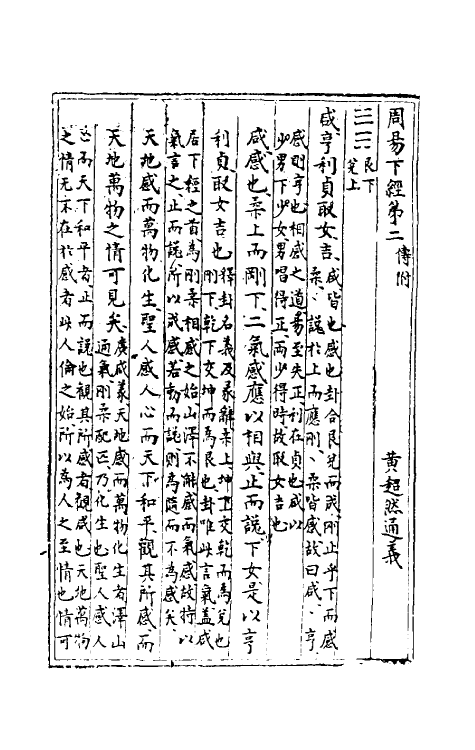 周易下經第二傳附
黃超然通義
艮下兌上
咸亨利貞取女吉
咸皆也感也卦合艮兌而成剛止乎下而感
柔、說於上而應剛、柔皆感故曰咸、亨
感則亨也相感之道易至失正利在貞也咸以
少男下少女男唱得正兩少得時故取女吉也
咸感也柔上而剛下二氣感應以相與止而說男下女是以亨
利貞取女吉也
釋卦名義及彖辭柔上坤上交乾而為兌也
剛下乾下交坤而為艮也卦唯此言氣蓋咸
居下經之首為剛柔相感之始山澤不能感而氣感故特以
氣言之止而說所以成感若動而說則為隨而不為感矣
天地感而萬物化生聖人感人心而天下和平觀其所感而
天地萬物之情可見矣
廣咸義天地感而萬物化生者澤山
通氣剛柔配匹乃化生也聖人感人
心而天下和平者止而說也觀其所感者觀咸也天地萬物
之情无不在於感者此人倫之始所以為人之至情也情可